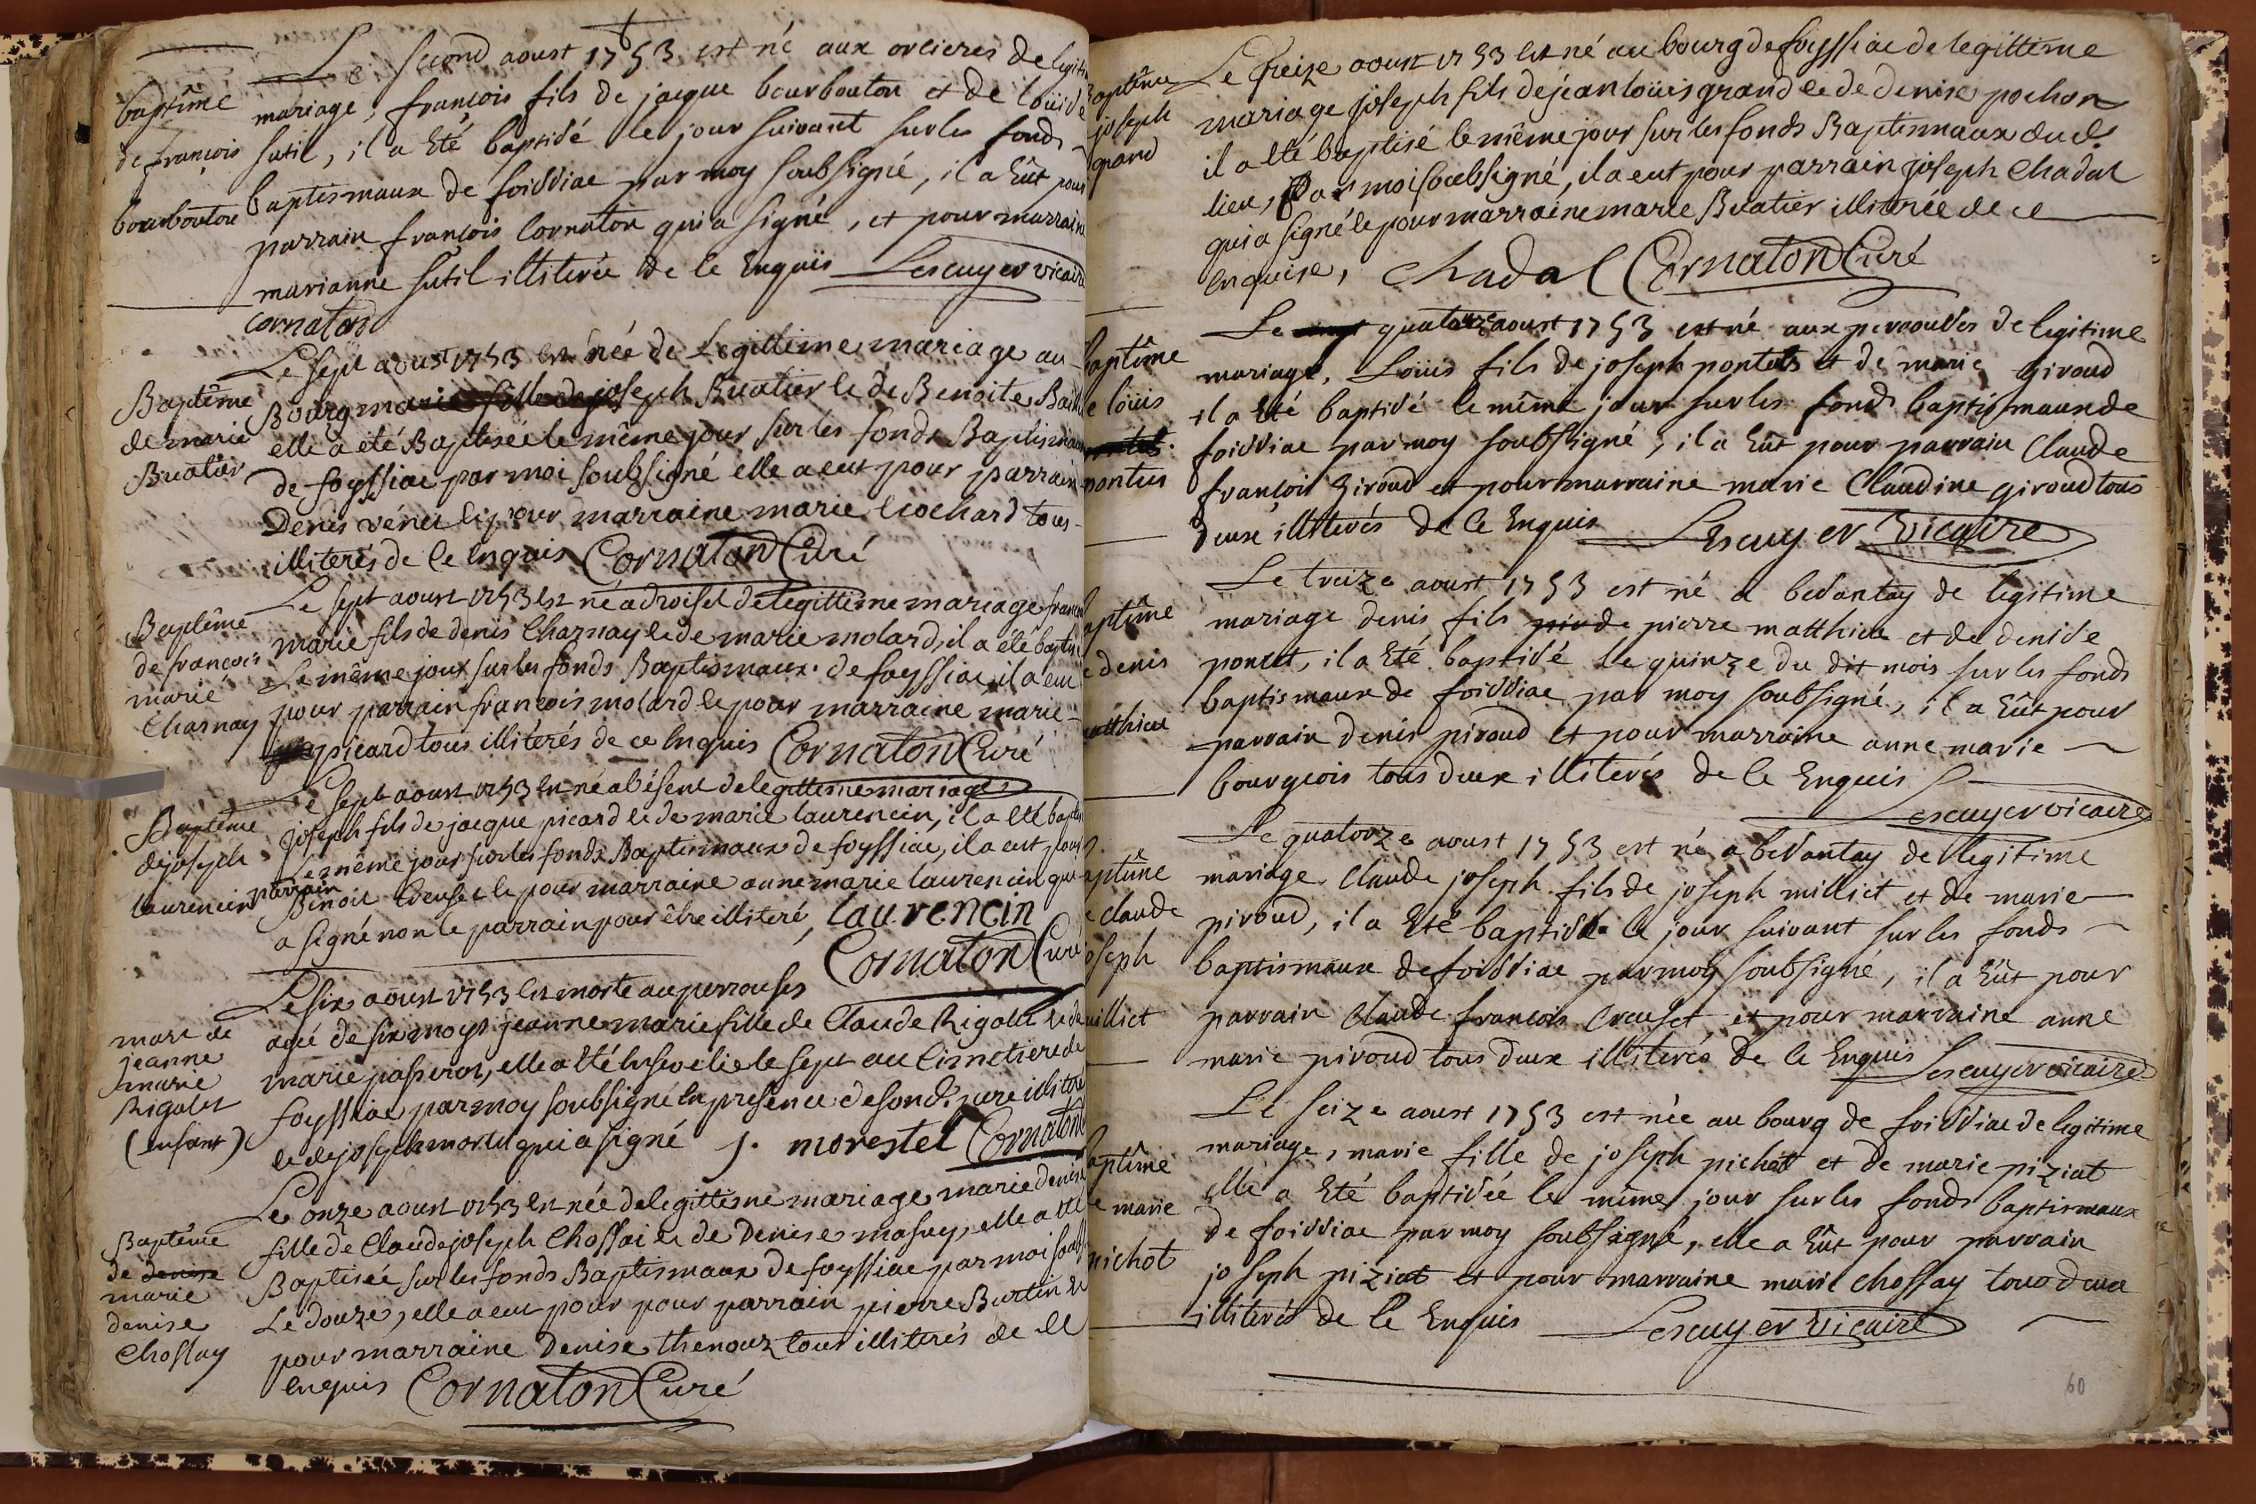 Le second aoust 1753 est né aux orcieres de legiti
mariage, françois fils de jacque bourbouton et de loüise
sutil, il a Eté baptisé le jour suivant sur les fonds
baptismaux de foissiac par moy soubsigné, il a Eût pour
parrain françois Cornaton qui a signé, et pour marraine
marianne sutil illiterée de ce Enquis Lescuyer vicaire
cornaton
baptême
de françois
bourbouton
Le sept aoust 1753 est née de Legittime mariage au
Bourg marie fille de joseph Buatier et de Benoite
elle a eté Baptisée le même jour sur les fonds Baptismaux
de foyssiac par moi soubsigné elle a eut pour parrain
Denis vénet et pour marraine marie cochard tous
illiterés de ce enquis Cornaton Curé
Baptême
de marie
Buatier
Le sept aoust 1753 est né a droisel de legittime mariage françois
marie fils de denis Charnay et de marie molard, il a été baptisé
Le même jour sur les fonds Baptismaux de foyssiac il a eut
pour parrain francois molard et pour marraine marie
picard tous illiterés de ce enquis Cornaton Curé
Baptême
de francois
marie
Charnay
Le sept aoust 1753 est né a bésent de legittime mariage
joseph fils de jacque picard et de marie laurencin, il a eté baptisé
Le même jour sur les fonds Baptismaux de foyssiac, il a eut pour
parrain Benoit Creuset et pour marraine anne marie laurencin qui
a signé non le parrain pour être illiteré, laurencin
Cornaton Curé
Baptême
de joseph
laurencin
Le six aoust 1753 est morte au perrouses
agé de six moys jeanne marie fille de Claude Rigolet et de
marie passerot, elle a eté ensevelie le sept au Cimetiere de
foyssiac par moy soubsigné en presence de sond. pere illiteré
et de joseph mortel qui a signé j. morestel Cornaton
mort de
jeanne
marie
Rigolet
(enfant)
Le onze aoust 1753 est née de legittime mariage marie denise
fille de Claude joseph Chossai et de Denise masuy, elle a eté
Baptisée sur les fonds Baptismaux de foyssiac par moi soubs
Le douze, elle a eut pour pour parrain pierre Burtin et
pour marraine Denise thenoux tous illiterés de ce
enquis Cornaton Curé
Baptême
de denise
marie
denise
Chossay
Le treize aoust 1753 est né au bourg de foyssiac de legittime
mariage joseph fils de jean loüis grand et de denise pochon
il a eté baptisé le même jour sur les fonds Baptismaux dud.
lieu, par moi soubsigné, il a eut pour parrain joseph Chadal
qui a signé et pour marraine marie Buatier illiterée de ce
enquise, Chadal Cornaton Curé
Baptême
joseph
grand
Le quatorze aoust 1753 est né aux perrouses de legitime
mariage, Loüis fils de joseph pontus et de marie giroud
il a Eté baptisé le même jour sur les fonds baptismaux de
foissiac par moy soubsigné, il a Eût pour parrain Claude
françois Giroud et pour marraine marie Claudine giroud tous
deux illiterés de ce Enquis Lescuyer vicaire
baptême
e loüis
pontus
Le treize aoust 1753 est né a besantay de legitime
mariage denis fils pierre matthieu et de denise
poncet, il a Eté baptisé le quinze du dit mois sur les fonds
baptismaux de foissiac par moy soubsigné, il a Eût pour
parrain denis piroud et pour marraine anne marie
bourgeois tous deux illiterés de ce Enquis
Lescuyer vicaire
aptême
e denis
atthieu
Le quatorze aoust 1753 est né a besantay de legitime
mariage Claude joseph fils de joseph milliet et de marie
piroud, il a Eté baptisé le jour suivant sur les fonds
baptismaux de foissiac par moy soubsigné, il a Eût pour
parrain Claude françois Creuset et pour marraine anne
marie piroud tous deux illiterés de ce Enquis Lescuyer vicaire
aptême
e claude
oseph
illiet
Le seize aoust 1753 est née au bourg de foissiac de legitime
mariage, marie fille de joseph pichot et de marie piziat
elle a Eté baptisée le même jour sur les fonds baptismaux
de foissiac par moy soubsigné, elle a Eût pour parrain
joseph piziat et pour marraine marie chossay tous deux
illiterés de ce Enquis Lescuyer vicaire
aptême
e marie
pichot
60